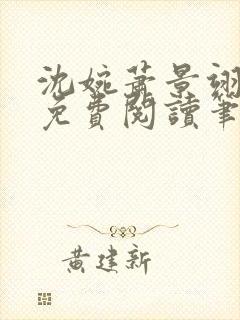 沈婉蕭景翊
免費閱讀筆
黃建新